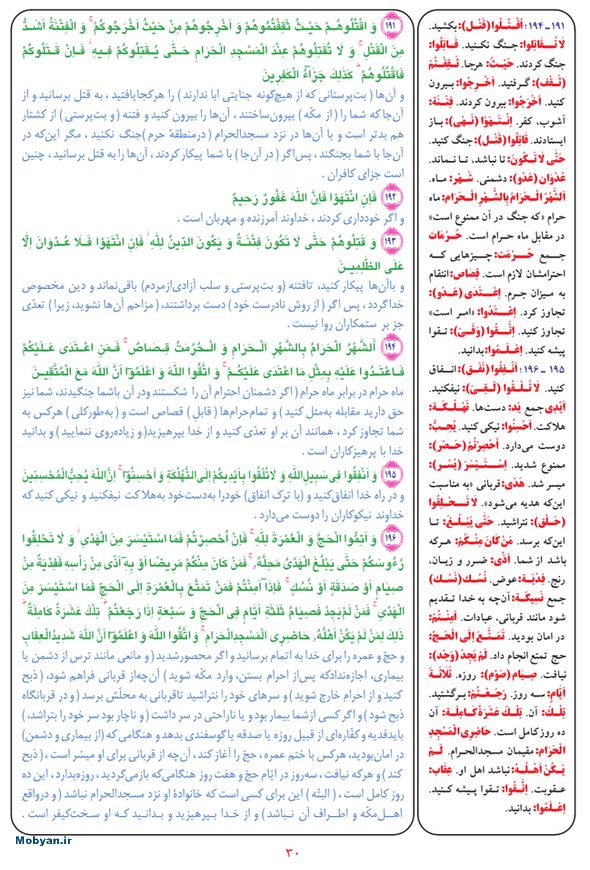 ۱۹۱ وَ اقْتُلُوهُمْ حَيْثُ ثَقِفْتُمُوهُمْ وَ اَخْرِجُوهُمْ مِنْ حَيْثُ اَخْرَجُوكُمْ ۚ وَ الْفِتْنَةُ اَشَدُّ
مِنَ الْقَتْلِ ۚ وَ لَا تُقٰتِلُوهُمْ عِنْدَ الْمَسْجِدِ الْحَرَامِ حَتّٰى يُقٰتِلُوكُمْ فِيهِ ۖ فَاِنْ قٰتَلُوكُمْ
فَاقْتُلُوهُمْ ۗ كَذٰلِكَ جَزَآءُ الْكٰفِرِينَ
و آن‌ها ( بت‌پرستانی که از هیچ‌گونه جنایتی ابا ندارند ) را هرکجایافتید ، به قتل برسانید و از
آن‌جاکه شما را ( از مکّه ) بیرون‌ساختند ، آن‌ها را بیرون کنید و فتنه ( و بت‌پرستی ) از کشتار
هم بدتر است و با آن‌ها در نزد مسجدالحرام ( درمنطقهٔ حرم ) جنگ نکنید ، مگر این‌که در
آن‌جا با شما بجنگند ، پس‌اگر ( در آن‌جا ) با شما پیکار کردند ، آن‌ها را به قتل برسانید ، چنین
است جزای کافران .
۱۹۲ فَاِنِ انْتَهَوْا فَاِنَّ اللّٰهَ غَفُورٌ رَحِيمٌ
و اگر خودداری کردند ، خداوند آمرزنده و مهربان است .
۱۹۳ وَ قٰتِلُوهُمْ حَتّٰى لَا تَكُونَ فِتْنَةٌ وَ يَكُونَ الدِّينُ لِلّٰهِ ۖ فَاِنِ انْتَهَوْا فَلَا عُدْوَانَ اِلَّا
عَلَى الظّٰلِمِينَ
و باآن‌ها پیکار کنید، تافتنه (و بت‌پرستی و سلب آزادی‌ازمردم) باقی‌نماند و دین مخصوص
خداگردد ، پس اگر ( از روش نادرست خود ) دست برداشتند، ( مزاحم آن‌ها نشوید، زیرا ) تعدّی
جز بر ستمکاران روا نیست .
۱۹۴ اَلشَّهْرُ الْحَرَامُ بِالشَّهْرِ الْحَرَامِ وَ الْحُرُمٰتُ قِصَاصٌ ۚ فَمَنِ اعْتَدٰى عَلَيْكُمْ
فَاعْتَدُوا عَلَيْهِ بِمِثْلِ مَا اعْتَدٰى عَلَيْكُمْ ۚ وَ اتَّقُوا اللّٰهَ وَ اعْلَمُوٓا اَنَّ اللّٰهَ مَعَ الْمُتَّقِينَ
ماه حرام در برابر ماه حرام ( اگر دشمنان احترام آن را شکستندودر آن باشما جنگیدند، شما نیز
حق دارید مقابله به‌مثل کنید ) و تمام‌حرام‌ها ( قابل ) قصاص است و (به‌طورکلی ) هرکس به
شما تجاوز کرد ، همانند آن بر او تعدّی کنید و از خدا بپرهیزید( و زیاده‌روی ننمایید ) و بدانید
خدا با پرهیزکاران است .
۱۹۵ وَ اَنْفِقُوا فِى سَبِيلِ اللّٰهِ وَ لَا تُلْقُوا بِاَيْدِيكُمْ اِلَى التَّهْلُكَةِ ۛ وَ اَحْسِنُوٓا ۛ اِنَّ اللّٰهَ يُحِبُّ الْمُحْسِنِينَ
و در راه خدا انفاق‌کنید و (با ترک انفاق) خودرا به‌دست‌خود به‌هلاکت نیفکنید و نیکی کنید که
خداوند نیکوکاران را دوست می‌دارد .
۱۹۶ وَ اَتِمُّوا الْحَجَّ وَ الْعُمْرَةَ لِلّٰهِ ۚ فَاِنْ اُحْصِرْتُمْ فَمَا اسْتَيْسَرَ مِنَ الْهَدْىِ ۖ وَ لَا تَحْلِقُوا
رُءُوسَكُمْ حَتّٰى يَبْلُغَ الْهَدْىُ مَحِلَّهُ ۚ فَمَنْ كَانَ مِنْكُمْ مَرِيضًا اَوْ بِهِٓ اَذًى مِنْ رَأْسِهِ فَفِدْيَةٌ مِنْ
صِيَامٍ اَوْ صَدَقَةٍ اَوْ نُسُكٍ ۚ فَاِذَآ اَمِنْتُمْ فَمَنْ تَمَتَّعَ بِالْعُمْرَةِ اِلَى الْحَجِّ فَمَا اسْتَيْسَرَ مِنَ
الْهَدْىِ ۚ فَمَنْ لَمْ يَجِدْ فَصِيَامُ ثَلٰثَةِ اَيَّامٍ فِى الْحَجِّ وَ سَبْعَةٍ اِذَا رَجَعْتُمْ ۗ تِلْكَ عَشَرَةٌ كَامِلَةٌ ۗ
ذٰلِكَ لِمَنْ لَمْ يَكُنْ اَهْلُهُ حَاضِرِى الْمَسْجِدِ الْحَرَامِ ۚ وَ اتَّقُوا اللّٰهَ وَ اعْلَمُوٓا اَنَّ اللّٰهَ شَدِيدُ الْعِقَابِ
و حج و عمره را برای خدا به اتمام برسانید و اگر محصورشدید ( و مانعی مانند ترس از دشمن یا
بیماری، اجازه‌ندادکه پس‌از احرام بستن، وارد مکّه شوید ) آن‌چه‌از قربانی فراهم شود، ( ذبح
کنید و از احرام خارج شوید ) و سرهای خود را نتراشید تاقربانی به محلّش برسد ( و در قربانگاه
ذبح شود ) و اگر کسی ازشما بیمار بود و یا ناراحتی در سر داشت ( و ناچار بود سر خود را بتراشد، )
بایدفدیه و کفّاره‌ای از قبیل روزه یا صدقه یا گوسفندی بدهد و هنگامی که (از بیماری و دشمن)
در امان‌بودید، هرکس با ختم عمره، حجّ را آغاز کند، آن‌چه از قربانی برای او میسّر است ، ( ذبح
کند ) و هرکه نیافت ، سه‌روز در ایّام حجّ و هفت روز هنگامی‌که بازمی‌گردید ، روزه‌بدارد ، این ده
روز کامل است ، ( البتّه ) این برای کسی است که خانوادهٔ او نزد مسجدالحرام نباشد ( و درواقع
اهل‌مکّه و اطراف آن نباشد ) و از خدا بپرهیزید و بدانید که او سخت‌کیفر است .
۱۹۱ـ۱۹۴: اُقْتُلُوا (قَتَلَ): بکشید.
لاتُقاتِلُوا: جنگ نکنید. قاتَلُوا:
جنگ کردند. حَیْثُ: هرجا. ثَقِفْتُمْ
(ثَقِفَ): گرفتید. اَخْرِجُوا: بیرون
کنید. اَخْرَجُوا: بیرون کردند. فِتْنَة:
آشوب، کفر. اِنْتَهَوْا (نَهَیَ): باز
ایستادند. قاتِلُوا (قَتَلَ): جنگ کنید.
حَتّی لاتَکُونَ: تا نباشد، تا نماند.
عُدْوان (عَدَوَ): دشمنی. شَهْر: ماه.
اَلشَّهْرُ الْحَرامُ بِالشَّهْرِ الْحَرامِ: ماه
حرام «که جنگ در آن ممنوع است»
در مقابل ماه حرام است. حُرُمات
جمع حُرْمَت: چیزهایی که
احترامشان لازم است. قِصاص: انتقام
به میزان جرم. اِعْتَدی (عَدَوَ):
تجاوز کرد. اِعْتَدُوا: «امر است»
تجاوز کنید. اِتَّقُوا (وَقَیَ): تقوا
پیشه کنید. اِعْلَمُوا: بدانید.
۱۹۵ـ۱۹۶: اَنْفِقُوا (نَفَقَ): انفاق
کنید. لاتُلْقُوا (لَقِیَ): نیفکنید.
اَیْدِی جمع یَد: دست‌ها. تَهْلُکَة:
هلاکت. اَحْسِنُوا: نیکی کنید. یُحِبُّ:
دوست می‌دارد. اُحْصِرْتُمْ (حَصَرَ):
ممنوع شدید. اِسْتَیْسَرَ (یَسَرَ):
میسر شد. هَدْی: قربانی «به مناسبت
این‌که هدیه می‌شود». لاتَحْلِقُوا
(حَلَقَ): نتراشید. حَتّی یَبْلُغَ: تا
این‌که برسد. مَنْ کانَ مِنْکُمْ: هرکه
باشد از شما. اَذی: ضرر و زیان،
رنج. فِدْیَة: عوض. نُسُک (نَسَکَ)
جمع نَسیکَة: آن‌چه به خدا تقدیم
شود مانند قربانی، عبادات. اَمِنْتُمْ:
در امان بودید. تَمَتَّعَ اِلَی الْحَجِّ:
حج تمتع انجام داد. لَمْ یَجِدْ (وَجَدَ):
نیافت. صِیام (صَوَمَ): روزه. ثَلاثَة
اَیّام: سه روز. رَجَعْتُمْ: برگشتید.
تِلْکَ: آن. تِلْکَ عَشَرَةٌ کامِلَة: آن
ده روز کامل است. حاضِرِی الْمَسْجِدِ
الْحَرام: مقیمان مسجدالحرام. لَمْ
یَکُنْ اَهْلُهُ: نباشد اهل او. عِقاب:
عقوبت. اِتَّقُوا: تقوا پیشه کنید.
اِعْلَمُوا: بدانید.
Mobyan.ir
۳۰